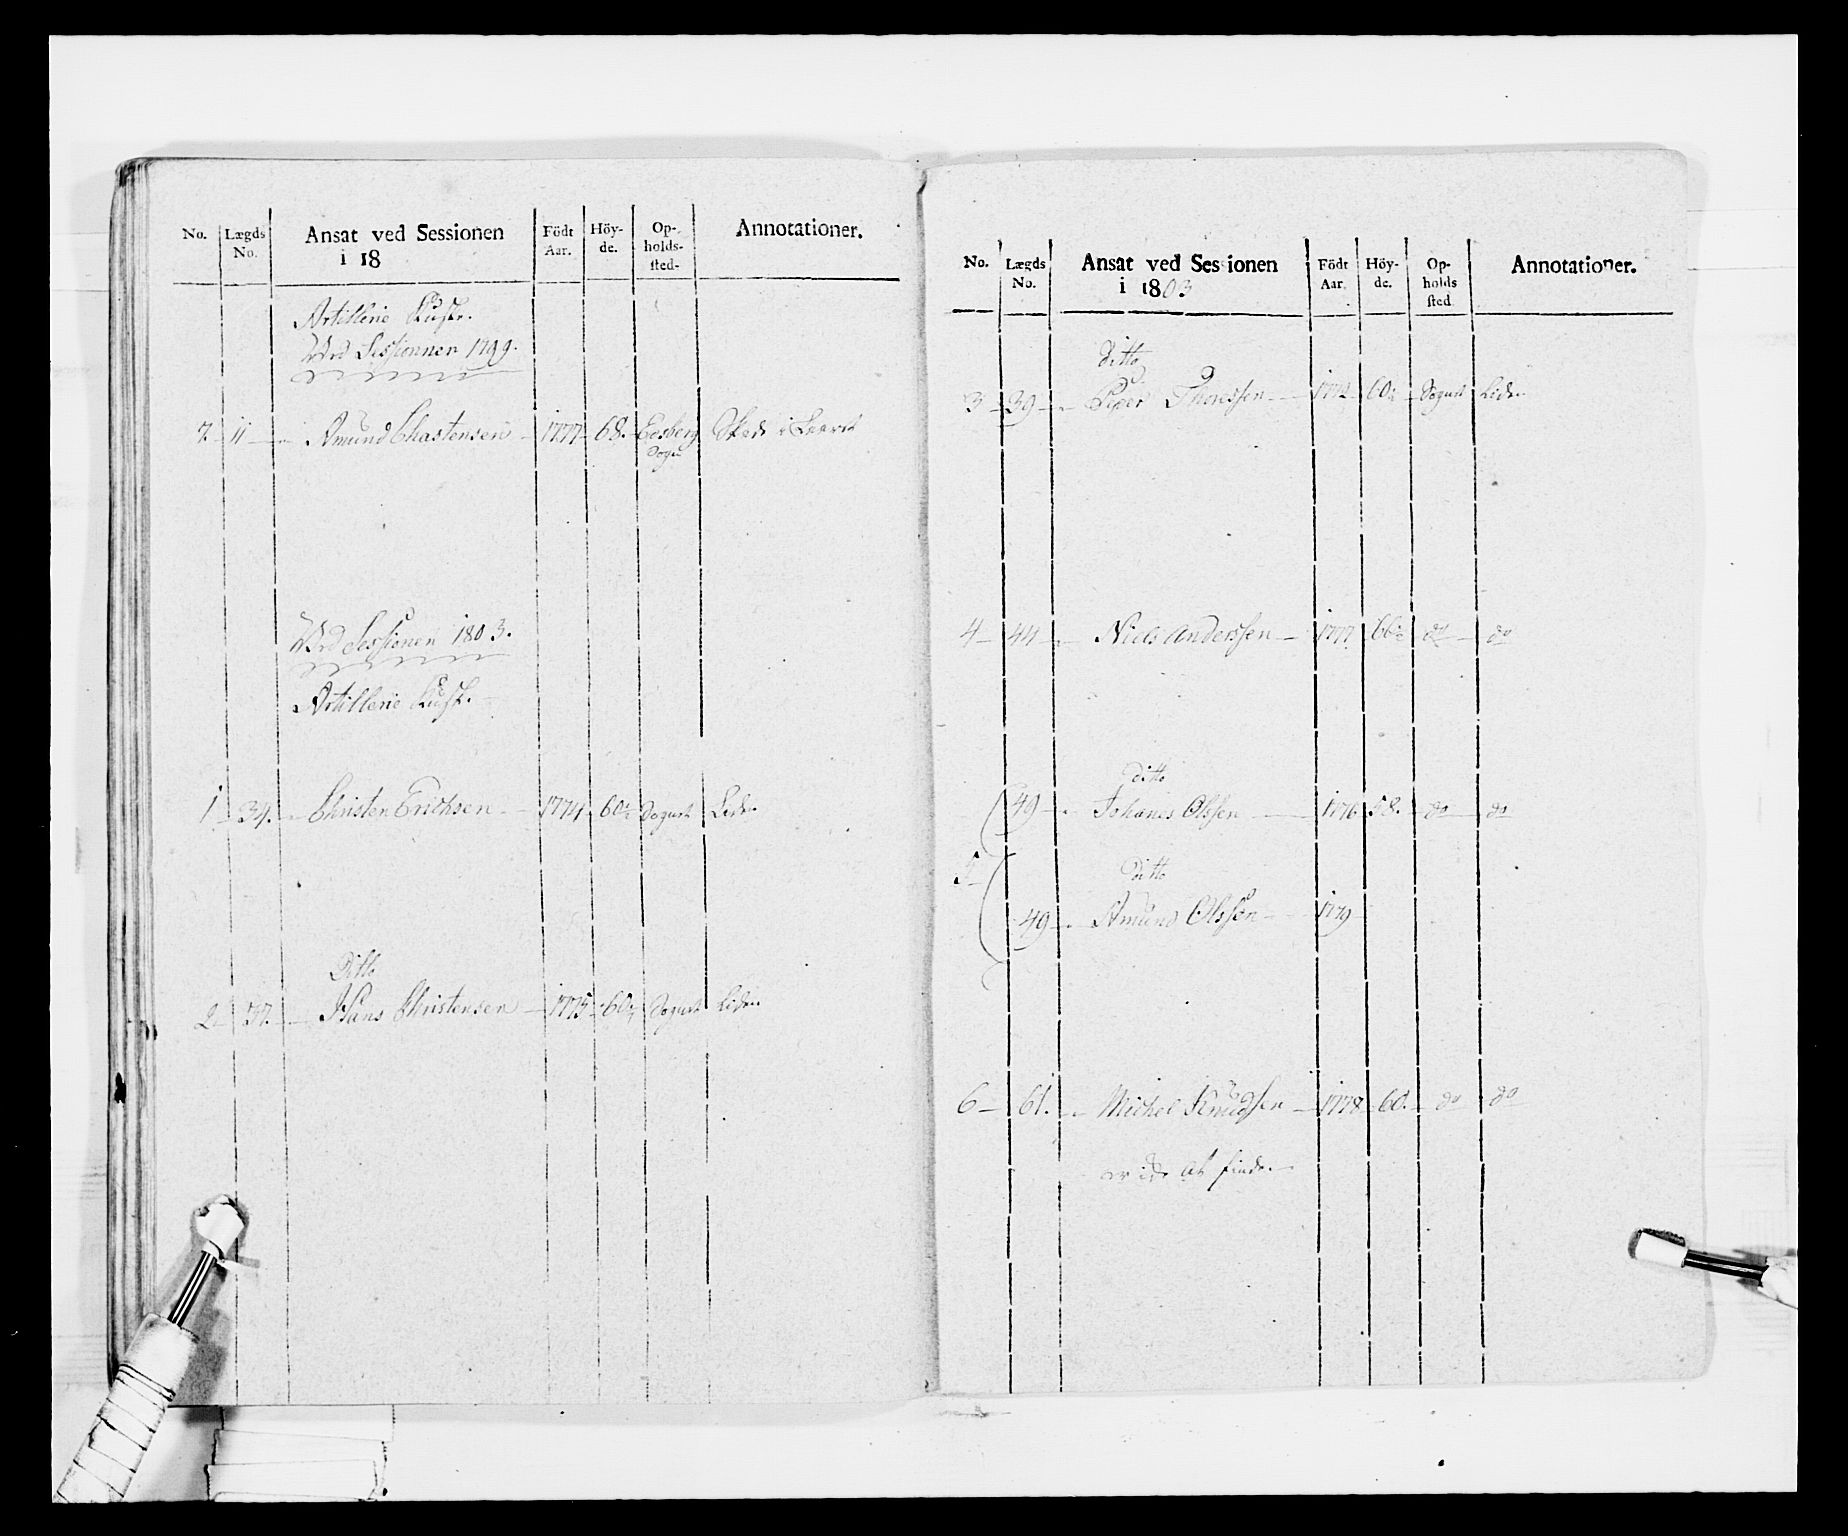 No. Lægds No. Ansat ved Sessionen i 18 Födt Aar. Höy-de. Op-holds-sted- Annotationer.
Artillerie Kuske.
Ved Sessionnen 1799.
7. 11 Amund Chastensen 1777 68. Eesberg Sogn
Ved Sessionen 1803.
Artillerie Kusk.
1 34. Christen Erichsen 1774 60 Sognet Leder
Ditto
2 37. Hans Christensen 1775 60 Sognet Leder
No. Lægds No. Ansat ved Sessionen i 1803 Födt Aar. Höy-de. Op-holds sted Annotationer.
ditto
3 39 Peder Thoressen 1772 60 Sognet Leder
4 44 Niels Anderssen 1777 66 do do
ditto
49 Johanes Olssen 1776 58. do do
5
ditto
49 Amund Olssen 1779
6 61. Michel Knudssen 1778 60. do do
er ide at finde